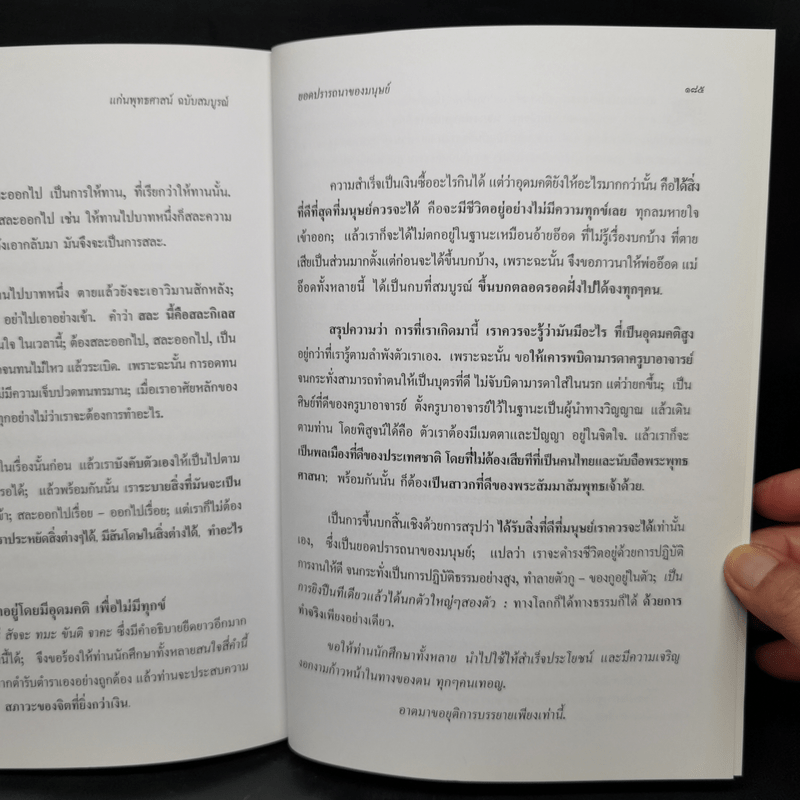 แก่นพุทธศาสน์ ฉบับสมบูรณ์
ละออกไป เป็นการให้ทาน, ที่เรียกว่าให้ทานนั้น.
สละออกไป เช่น ให้ทานไปบาทหนึ่งก็สละความ
เอากลับมา มันจึงจะเป็นการสละ.
านไปบาทหนึ่ง ตายแล้วยังจะเอาวิมานสักหลัง;
อย่าไปเอาอย่างเข้า. คำว่า สละ นี้คือสละกิเลส
ในเวลานี้; ต้องสละออกไป, สละออกไป, เป็น
จนทนไม่ไหว แล้วระเบิด. เพราะฉะนั้น การอดทน
ม่มีความเจ็บปวดทนทรมาน; เมื่อเราอาศัยหลักของ
ทุกอย่างไม่ว่าเราจะต้องการทำอะไร.
ในเรื่องนั้นก่อน แล้วเราบังคับตัวเองให้เป็นไปตาม
รอได้; แล้วพร้อมกันนั้น เราระบายสิ่งที่มันจะเป็น
สละออกไปเรื่อย – ออกไปเรื่อย; แต่เราก็ไม่ต้อง
าประหยัดสิ่งต่างๆได้. มีสันโดษในสิ่งต่างได้. ทำอะไร
อยู่โดยมีอุดมคติ เพื่อไม่มีทุกข์
สัจจะ ทมะ ขันติ จาคะ ซึ่งมีคำอธิบายยืดยาวอีกมาก
นี้ได้; จึงขอร้องให้ท่านนักศึกษาทั้งหลายสนใจสี่คำนี้
กตำรับตำราเองอย่างถูกต้อง แล้วท่านจะประสบความ
สภาวะของจิตที่ยิ่งกว่าเงิน.
ยอดปรารถนาของมนุษย์ ๑๘๕
ความสำเร็จเป็นเงินซื้ออะไรกินได้ แต่ว่าอุดมคติยังให้อะไรมากกว่านั้น คือได้สิ่ง
ที่ดีที่สุดที่มนุษย์ควรจะได้ คือจะมีชีวิตอยู่อย่างไม่มีความทุกข์เลย ทุกลมหายใจ
เข้าออก; แล้วเราก็จะได้ไม่ตกอยู่ในฐานะเหมือนอ้ายอ๊อด ที่ไม่รู้เรื่องบกบ้าง ที่ตาย
เสียเป็นส่วนมากตั้งแต่ก่อนจะได้ขึ้นบกบ้าง, เพราะฉะนั้น จึงขอภาวนาให้พ่ออ๊อด แม่
อ๊อดทั้งหลายนี้ ได้เป็นกบที่สมบูรณ์ ขึ้นบกตลอดรอดฝั่งไปได้จงทุกๆคน.
สรุปความว่า การที่เราเกิดมานี้ เราควรจะรู้ว่ามันมีอะไร ที่เป็นอุดมคติสูง
อยู่กว่าที่เรารู้ตามลำพังตัวเราเอง. เพราะฉะนั้น ขอให้เคารพบิดามารดาครูบาอาจารย์
จนกระทั่งสามารถทำตนให้เป็นบุตรที่ดี ไม่จับบิดามารดาใส่ในนรก แต่ว่ายกขึ้น; เป็น
ศิษย์ที่ดีของครูบาอาจารย์ ตั้งครูบาอาจารย์ไว้ในฐานะเป็นผู้นำทางวิญญาณ แล้วเดิน
ตามท่าน โดยพิสูจน์ได้คือ ตัวเราต้องมีเมตตาและปัญญา อยู่ในจิตใจ. แล้วเราก็จะ
เป็นพลเมืองที่ดีของประเทศชาติ โดยที่ไม่ต้องเสียทีที่เป็นคนไทยและนับถือพระพุทธ
ศาสนา; พร้อมกันนั้น ก็ต้องเป็นสาวกที่ดีของพระสัมมาสัมพุทธเจ้าด้วย.
เป็นการขึ้นบกสิ้นเชิงด้วยการสรุปว่า ได้รับสิ่งที่ดีที่มนุษย์เราควรจะได้เท่านั้น
เอง, ซึ่งเป็นยอดปรารถนาของมนุษย์; แปลว่า เราจะดำรงชีวิตอยู่ด้วยการปฏิบัติ
การงานให้ดี จนกระทั่งเป็นการปฏิบัติธรรมอย่างสูง, ทำลายตัวกู – ของกูอยู่ในตัว; เป็น
การยิงปืนทีเดียวแล้วได้นกตัวใหญ่ๆสองตัว : ทางโลกก็ได้ทางธรรมก็ได้ ด้วยการ
ทำจริงเพียงอย่างเดียว.
ขอให้ท่านนักศึกษาทั้งหลาย นำไปใช้ให้สำเร็จประโยชน์ และมีความเจริญ
งอกงามก้าวหน้าในทางของตน ทุกๆคนเทอญ.
อาตมาขอยุติการบรรยายเพียงเท่านี้.